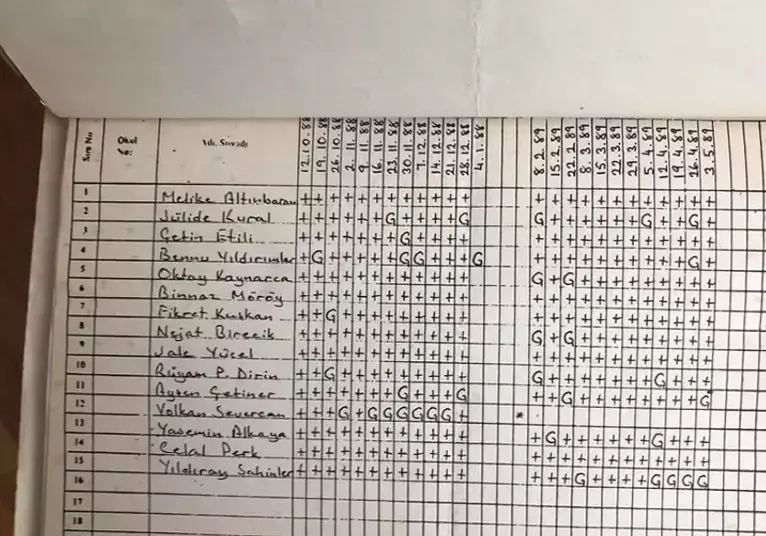 Sıra No Okul No: Adı, Soyadı 12.10.88 19.10.88 26.10.88 2.11.88 9.11.88 16.11.88 23.11.88 30.11.88 7.12.88 14.12.88 21.12.88 28.12.88 4.1.88 8.2.89 15.2.89 22.2.89 8.3.89 15.3.89 22.3.89 29.3.89 5.4.89 12.4.89 19.4.89 26.4.89 3.5.89
1 Melike Altınbaran + + + + + + + + + + + + + + + + + + + + + + + +
2 Jülide Kural + + + + + + G + + + + G G + + + + + + G + + G +
3 Çetin Etili + + + + + + + G + + + + + + + + + + + + + + + +
4 Bennu Yıldırımlar + G + + + + + G G + + + G + + + + + + + + + + G +
5 Oktay Kaynarca + + + + + + + + + + + + G + G + + + + + + + + +
6 Binnaz Möröy + + + + + + + + + + + + + + + + + + + + + + + +
7 Fikret Kuşkan + + G + + + + + + + + + + + + + + + + + + + + +
8 Nejat Birecik + + + + + + + + + + + + G + G + + + + + + + + +
9 Jale Yücel + + + + + + + + + + + + + + + + + + + + + + + +
10 Rüyam P. Dirin + + G + + + + + + + + + G + + + + + + + G + + +
11 Ayten Çetiner + + + + + + + G + + + G + + G + + + + + + + + G
12 Volkan Severcan + + + G + G G G G G G + *
13 Yasemin Alkaya + + + + + + + + + + + + + G + + + + + + G + + +
14 Celal Perk + + + + + + + + + + + + + + + + + + + + + + + +
15 Yıldıray Şahinler + + + + + + + + + + + + + + + G + + + + G G G G
16
17
18